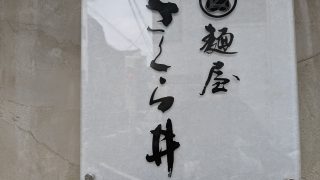 麺屋
さくら井